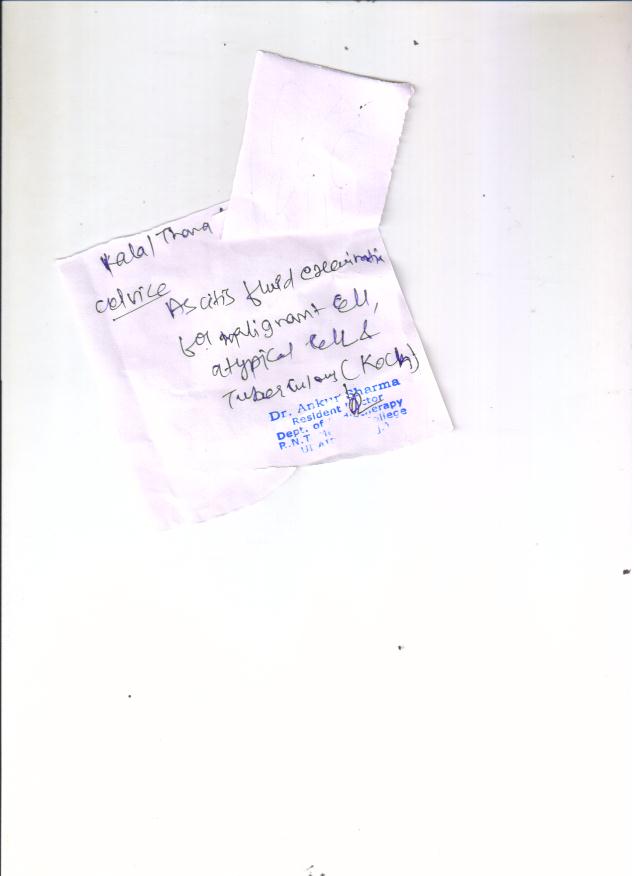 Kala/Thana
advice
Ascitis fluid examination
for malignant Cell,
atypical Cell &
Tuberculous (Koch)
Dr. Ankur Sharma
Resident Doctor
Dept. of
R.N.T.